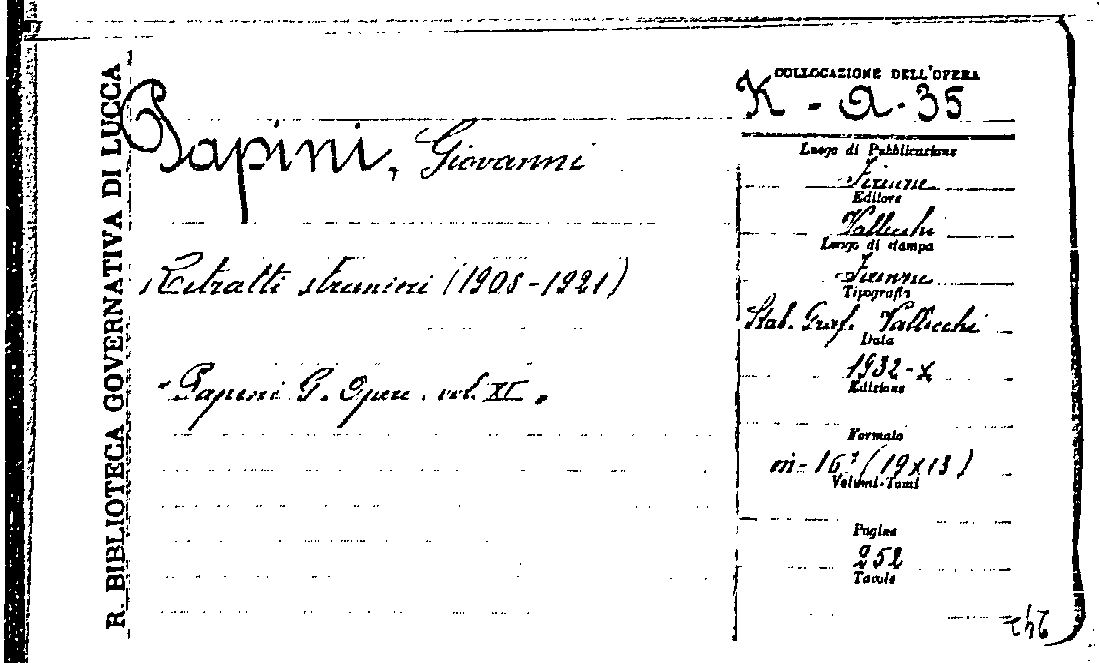 R. BIBLIOTECA GOVERNATIVA DI LUCCA
Papini, Giovanni
Ritratti stranieri (1908-1921)
"Papini G. Opere. vol. XI"
COLLOCAZIONE DELL'OPERA
K - a - 35
Luogo di Pubblicazione
Firenze
Editore
Vallecchi
Luogo di stampa
Firenze
Tipografia
Stab. Graf. Vallecchi
Data
1932-X
Edizione
Formato
in-16° (19x13)
Volumi-Tomi
Pagine
252
Tavole